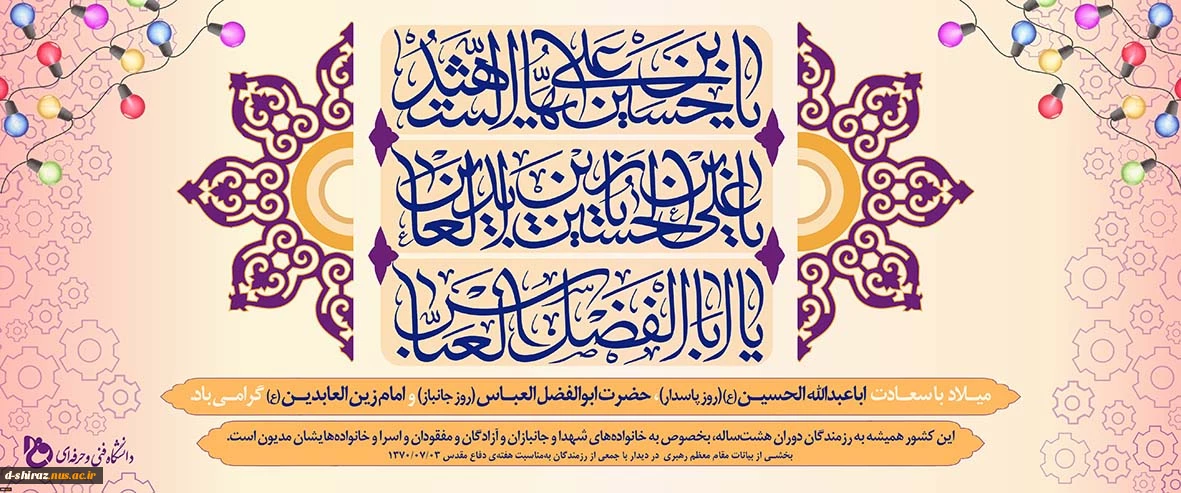 یا حسین بن علی ایها الشهید
یا علی بن الحسین یا زین العابدین
یا اباالفضل العباس
میلاد با سعادت اباعبدالله الحسین (ع) (روز پاسدار)، حضرت ابوالفضل العباس (روز جانباز) و امام زین العابدین (ع) گرامی باد.
این کشور همیشه به رزمندگان دوران هشت‌ساله، بخصوص به خانواده‌های شهدا و جانبازان و آزادگان و مفقودان و اسرا و خانواده‌هایشان مدیون است.
بخشی از بیانات مقام معظم رهبری در دیدار با جمعی از رزمندگان به‌مناسبت هفته‌ی دفاع مقدس ۱۳۷۰/۰۷/۰۳
دانشگاه فنی و حرفه‌ای
d-shiraz.nus.ac.ir